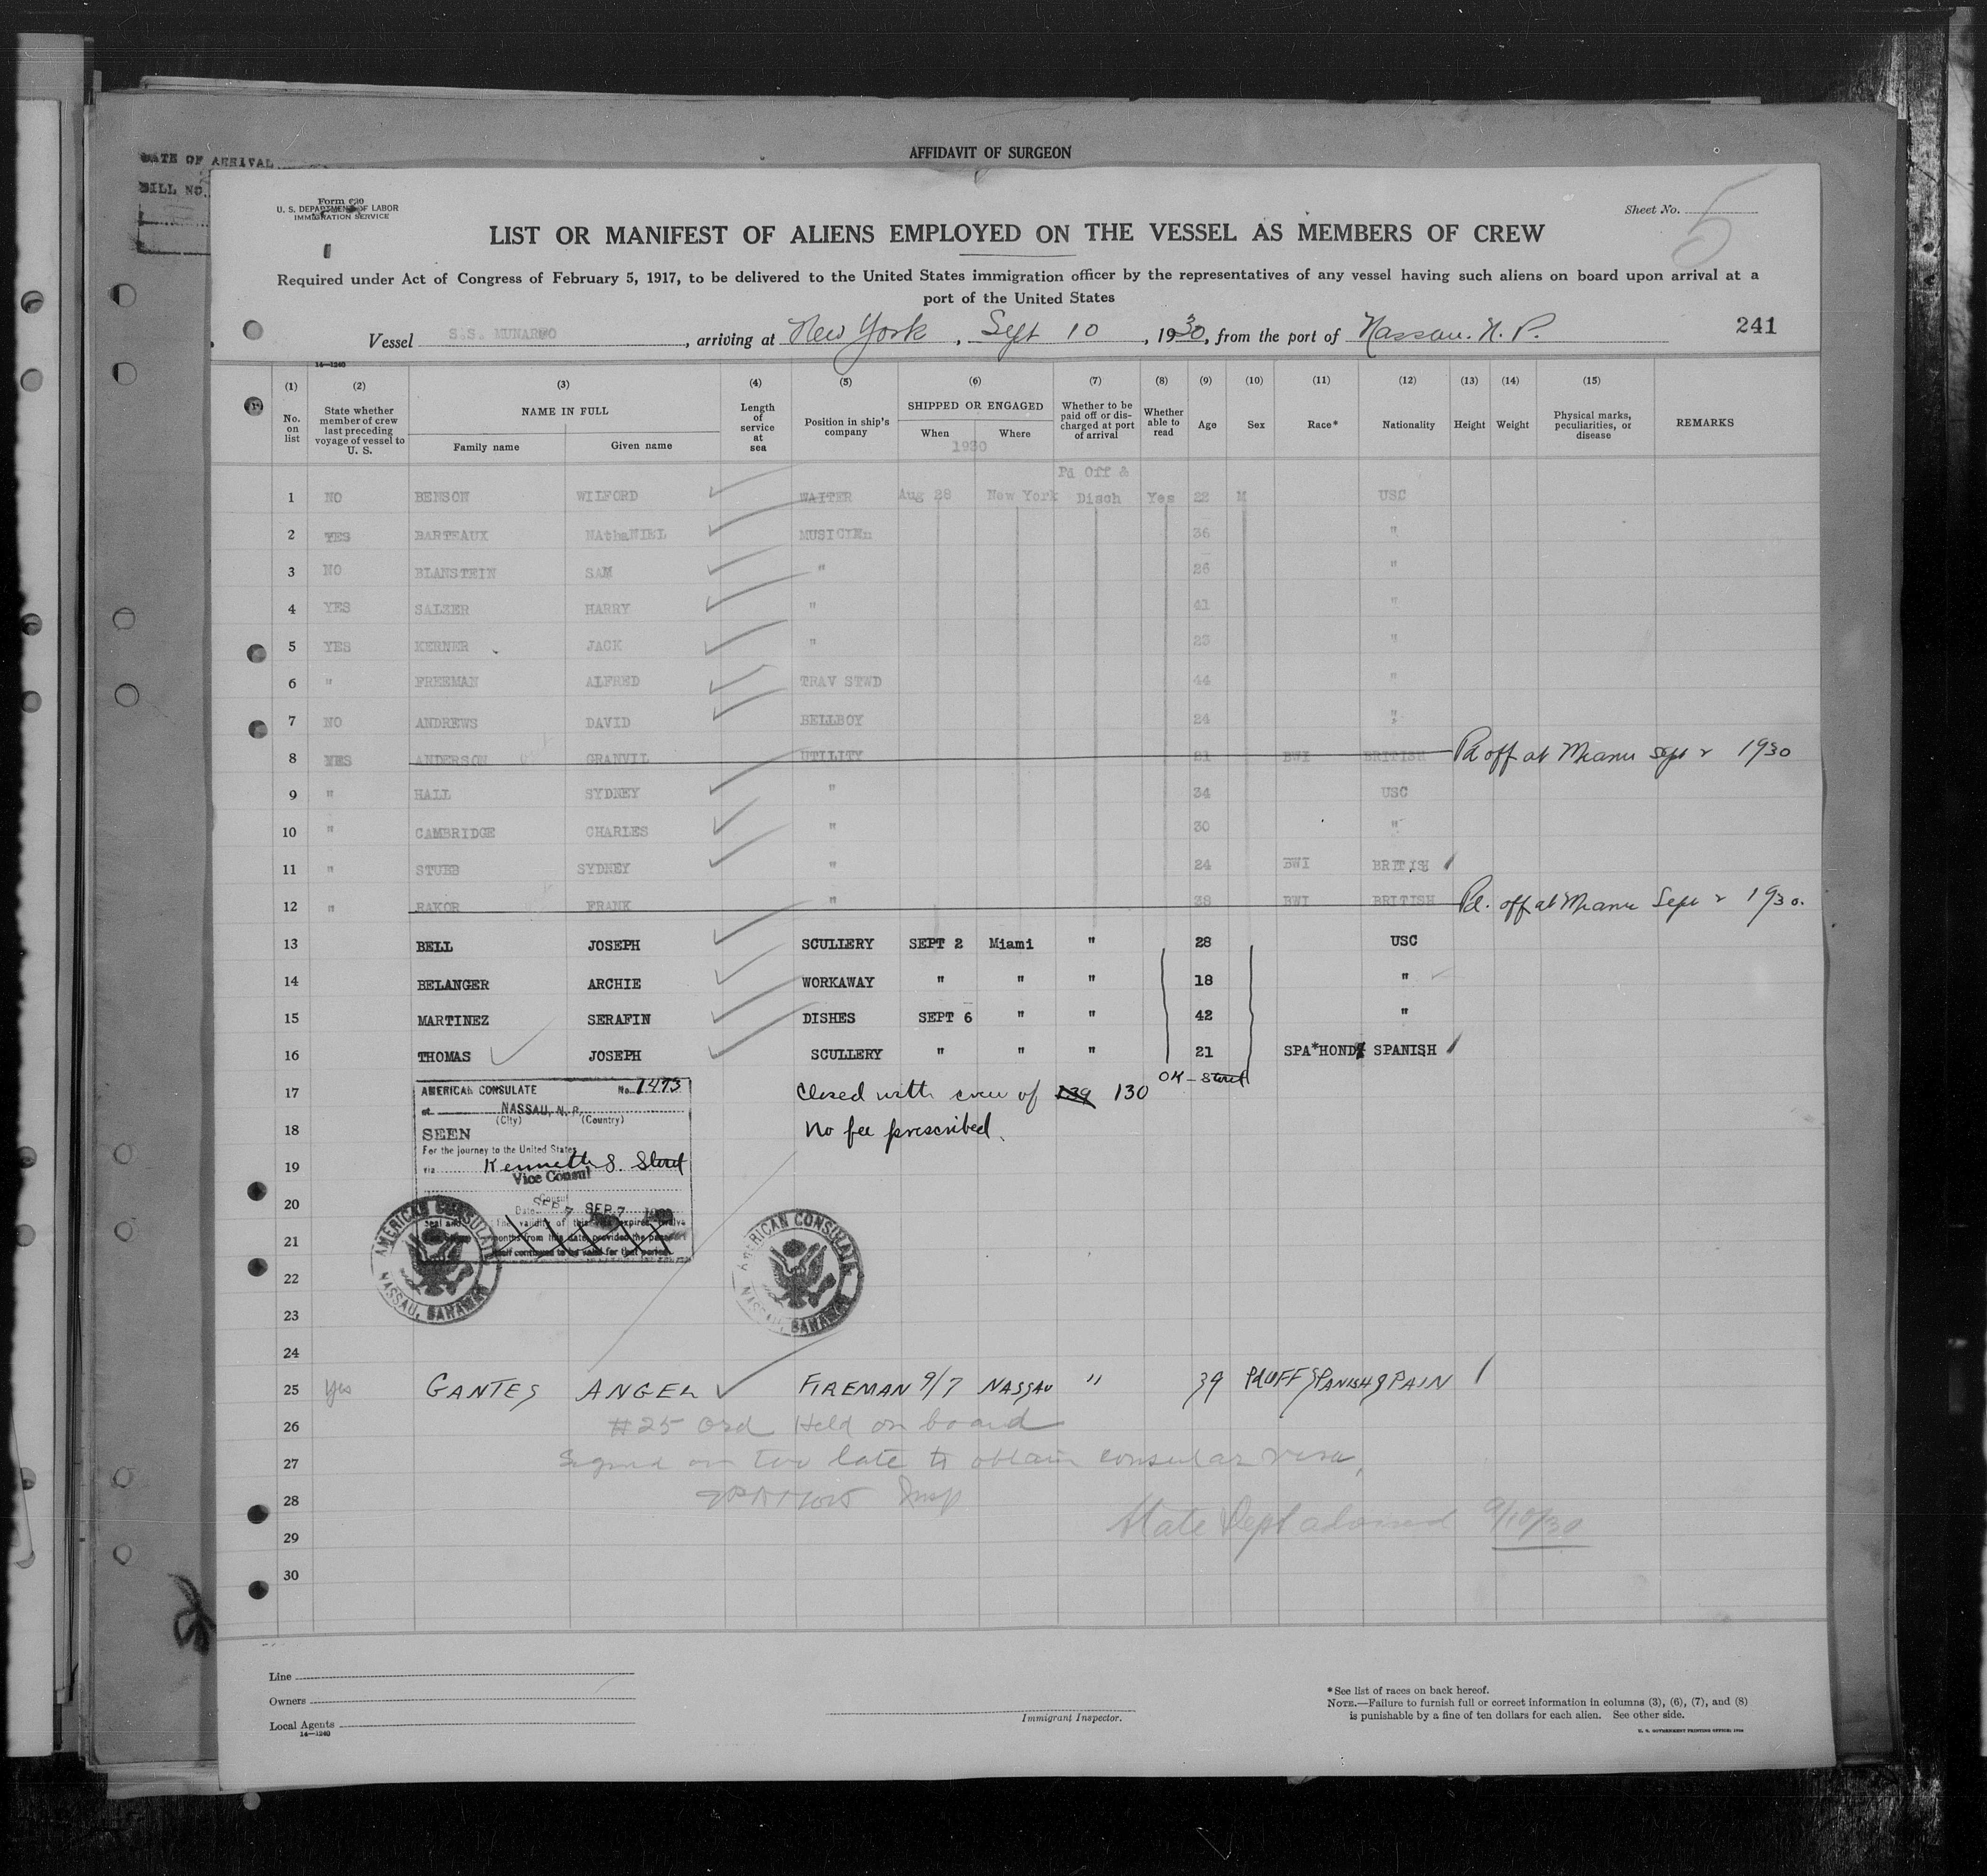 DATE OF ARRIVAL
BILL NO.
AFFIDAVIT OF SURGEON
Form 680
U. S. DEPARTMENT OF LABOR
IMMIGRATION SERVICE
Sheet No. 5
LIST OR MANIFEST OF ALIENS EMPLOYED ON THE VESSEL AS MEMBERS OF CREW
Required under Act of Congress of February 5, 1917, to be delivered to the United States immigration officer by the representatives of any vessel having such aliens on board upon arrival at a
port of the United States
Vessel S.S. MUNARGO, arriving at New York, Sept 10, 1930, from the port of Nassau. N. P. 241
14—1240
(1) (2) (3) (4) (5) (6) (7) (8) (9) (10) (11) (12) (13) (14) (15)
No. on list State whether member of crew last preceding voyage of vessel to U. S. NAME IN FULL Family name Given name Length of service at sea Position in ship's company SHIPPED OR ENGAGED When Where Whether to be paid off or discharged at port of arrival Whether able to read Age Sex Race* Nationality Height Weight Physical marks, peculiarities, or disease REMARKS
1930
Pd Off &
1 NO BENSON WILFORD WAITER Aug 28 New York Disch Yes 22 M USC
2 YES BARTEAUX NAthaNIEL MUSICIEn 36 "
3 NO BLANSTEIN SAM " 26 "
4 YES SALZER HARRY " 41 "
5 YES KERNER JACK " 23 "
6 " FREEMAN ALFRED TRAV STWD 44 "
7 NO ANDREWS DAVID BELLBOY 24 "
8 YES ANDERSON GRANVIL UTILITY 21 BWI BRITISH Pd off at Miami Sept 2 1930
9 " HALL SYDNEY " 34 USC
10 " CAMBRIDGE CHARLES " 30 "
11 " STUBB SYDNEY " 24 BWI BRITISH
12 " RAKOR FRANK " 38 BWI BRITISH Pd. off at Miami Sept 2 1930.
13 BELL JOSEPH SCULLERY SEPT 2 Miami " 28 USC
14 BELANGER ARCHIE WORKAWAY " " " 18 "
15 MARTINEZ SERAFIN DISHES SEPT 6 " " 42 "
16 THOMAS JOSEPH SCULLERY " " " 21 SPA*HOND SPANISH
OK - Steret
17 Closed with crew of 139 130
18 No fee prescribed.
19
20
21
22
23
24
AMERICAN CONSULATE No. 1473
at NASSAU, N. P.
(City) (Country)
SEEN
For the journey to the United States
via Kenneth S. Steret
Vice Consul
Consul
Date SEP 7 SEP 7 1930
Seal and The validity of this visa expires twelve
months from this date, provided the passport
itself continues to be valid for that period.
AMERICAN CONSULATE
NASSAU, BAHAMAS
AMERICAN CONSULATE
NASSAU, BAHAMAS
25 Yes GANTES ANGEL FIREMAN 9/7 NASSAU " 39 Pd OFF SPANISH SPAIN
26 #25 Ord Held on board
27 Signed on too late to obtain consular visa,
28 Insp
29 State Dept advised 9/10/30
30
Line
Owners
Local Agents
14—1240
Immigrant Inspector.
* See list of races on back hereof.
NOTE.—Failure to furnish full or correct information in columns (3), (6), (7), and (8)
is punishable by a fine of ten dollars for each alien. See other side.